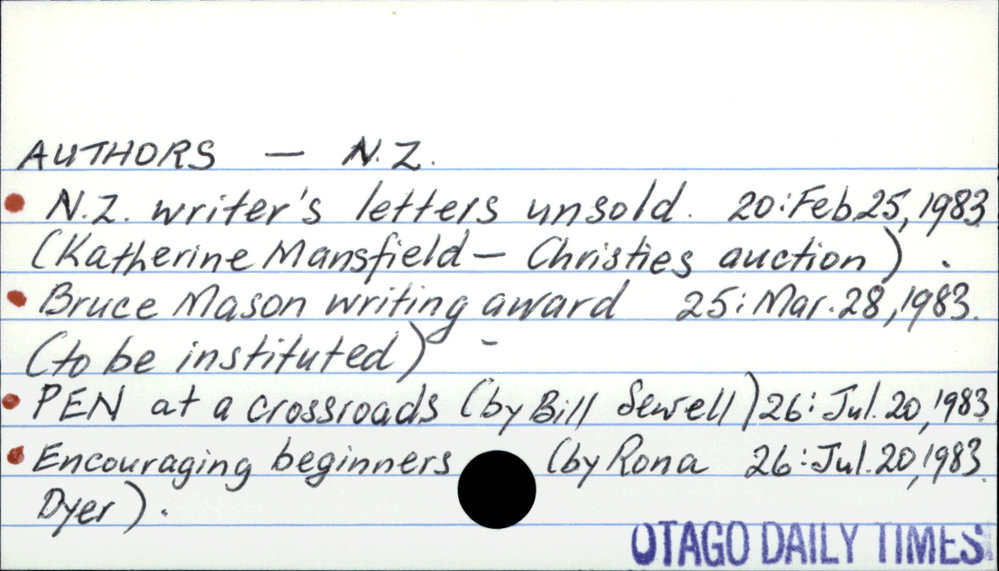 AUTHORS — N.Z.
• N.Z. writer's letters unsold. 20:Feb 25, 1983
(Katherine Mansfield — Christies auction) .
• Bruce Mason writing award 25:Mar. 28, 1983.
(to be instituted) -
• PEN at a crossroads (by Bill Sewell) 26:Jul. 20, 1983
• Encouraging beginners (by Rona 26:Jul. 20, 1983.
Dyer).
OTAGO DAILY TIMES